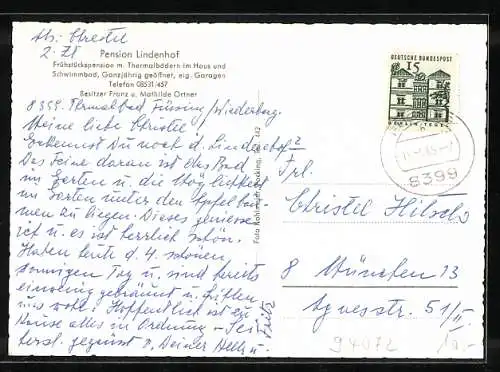 Abs: Christel
2. Zt
Pension Lindenhof
Frühstückspension m. Thermalbädern im Haus und
Schwimmbad, Ganzjährig geöffnet, eig. Garagen
Telefon 08531/457
Besitzer Franz u. Mathilde Ortner
8399 Thermalbad Füssing/
Meine liebe Christel
Erkennst Du noch d. Lindenhof?
Das Feine daran ist das Bad
im Garten u. die Möglichkeit
im Garten unter den Apfelbäu-
men zu liegen. Dieses geniesse
ich u. es ist herrlich schön.
Haben heute d. 4. schönen
sonnigen Tag u. sind bereits
ein wenig gebräunt u. fühlen
uns wohl. Hoffentlich ist zu
Hause alles in Ordnung – Sei
herzl. gegrüsst v. Deiner u.
Fritz
DEUTSCHE BUNDESPOST
15
8399
Frl.
Christel
8 München 13
Agnesstr. 51/II
94072
10.-